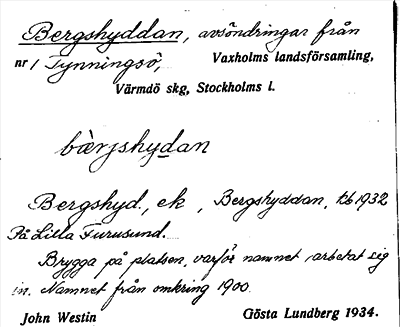 Bergshyddan, avsöndringar från
nr 1 Tynningsö, Vaxholms landsförsamling,
Värmdö skg, Stockholms l.
bærjshydan
Bergshyd., ek, Bergshyddan, tb 1932
På Lilla Furusund.
Brygga på platsen, varför namnet arbetat sig
in. Namnet från omkring 1900.
John Westin Gösta Lundberg 1934.